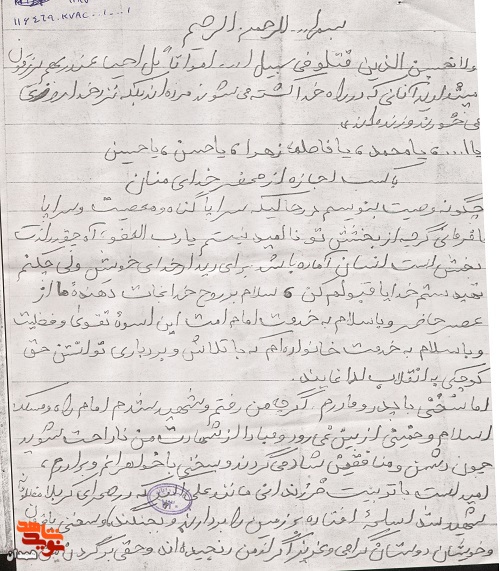 ۱۱۶۴۶۹.KVAC...۱
بسم ا... الرحمن الرحیم
ولا تحسبن الذین قتلو فی سبیل ا... امواتا بل احیاء عند ربهم یرزقون
مپندارید آنانی که در راه خدا کشته می شوند مرده اند بلکه نزد خدا روزی
می خورند و زنده اند
یا ا... ، یا محمد ، یا فاطمه زهرا ، یا حسن ، یا حسین
با کسب اجازه از محضر خدای منان
چگونه وصیت بنویسم در حالیکه سراپا گناه و معصیت و سراپا
نافرمانی گرچه از بخشش تو ناامید نیستم یارب العفو، آه چقدر لذت
بخش است انسان آماده باشد برای دیدار خدای خویش ولی چکنم
تهیدستم خدایا قبولم کن ، سلام بر روح خدا نجات دهنده ما از
عصر حاضر و با سلام به خدمت امام امت این اسوه تقوی و فضیلت
و با سلام به خدمت خانواده ام که با تلاش و بردباری توانستن حق
کوچکی به انقلاب ادا نمایند.
اما سخنی با پدر و مادرم گرچه من رفتم و شهید شدم امام راه و مسلک
اسلام و خمینی از بین نمی رود و مبادا از شهادت من ناراحت شوید
چون دشمن و منافقین شاد می گردند و سخنی با خواهرانم و برادرم ،
امید است با تربیت فرزندانی مانند علی اکبر که در صحرای کربلا
شهید شد اسلحه افتاده بر زمین را بردارند و بجنگند و سخنی با
و خویشان دوستان گرامی و عزیز اگر از من رنجیده اند و حقی بر گردن
شاهد
نوید
همدان